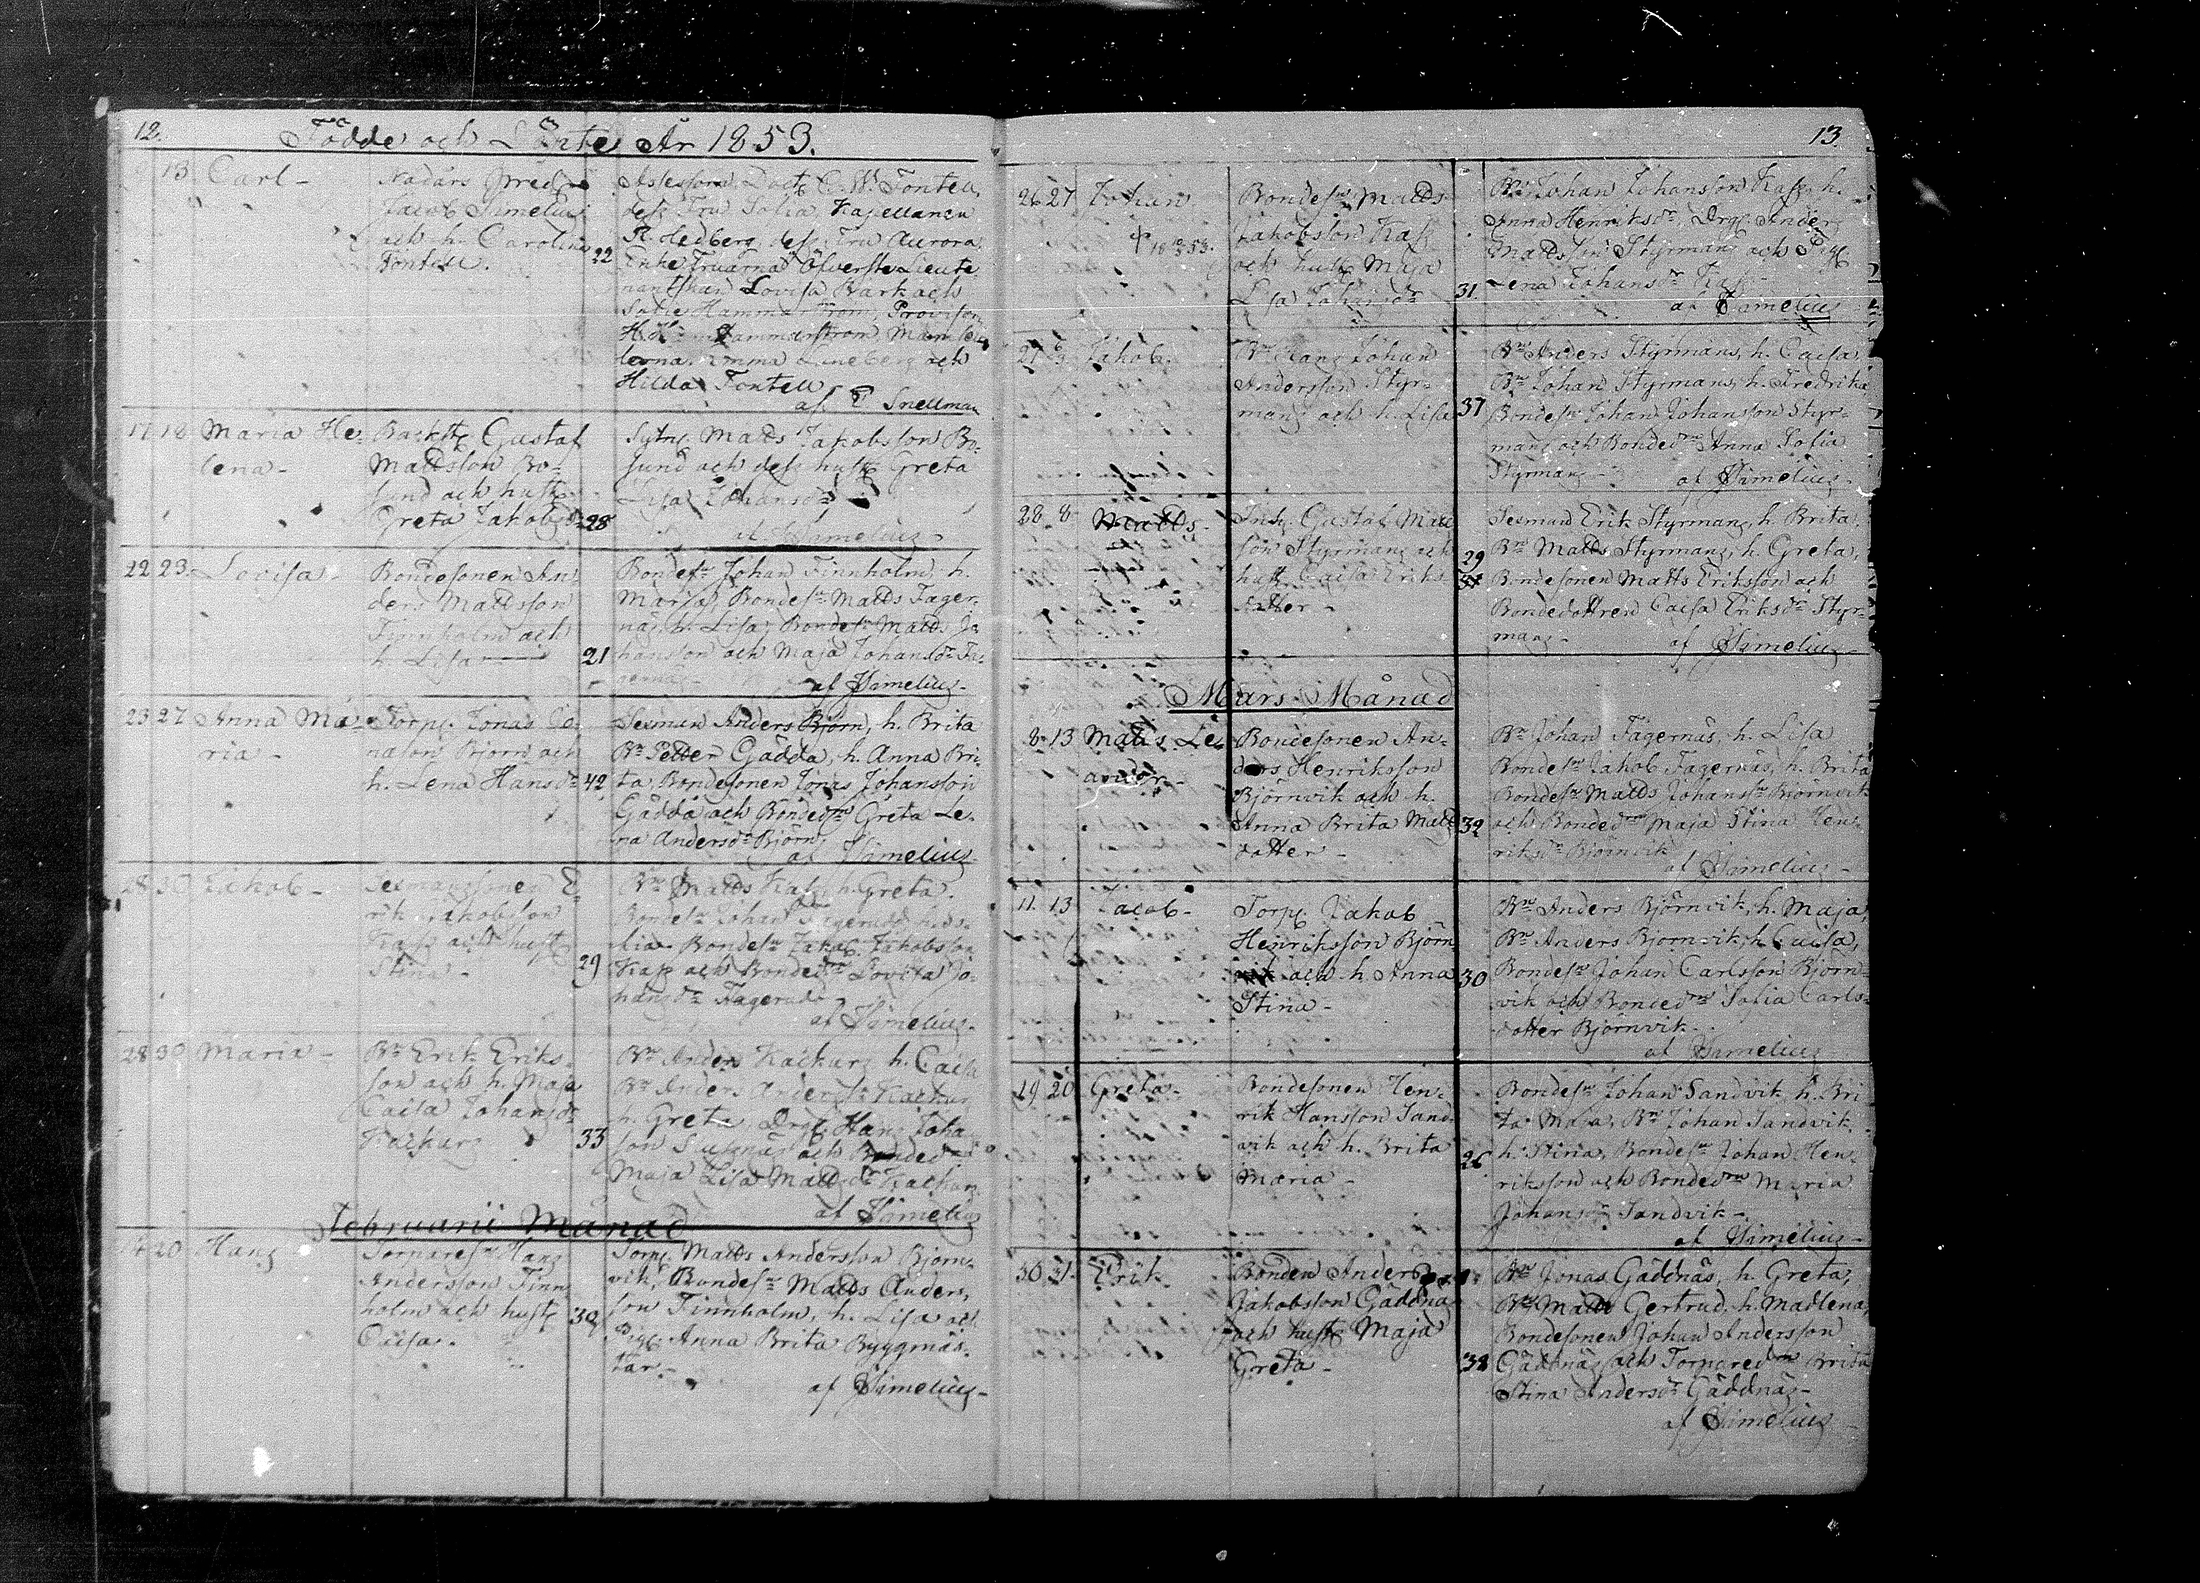 12.
Födde och Döpte År 1853.
13 Carl-
Nadärs Pred.
Jacob Simelius
och h. Carolina
Fontell.
22
Assessorn, Doct. C. W. Fontell,
dess Fru Sofia, Kapellanen
R. Hedberg, dess Fru Aurora,
Enke Fruarna Öfverste Lieute
nantskan Lovisa Bark och
Sofie Hammarström, Provisorn
Hammarström Mamsel
lerna Emma Lineberg och
Hilda Fontell
af E Snellman
17 18 Maria He-
lena-
Backst. Gustaf
Mattsson Bo-
sund och hust.
Greta Jakobsdr
28
Sytng Matts Jakobsson Bo-
sund och dess hust. Greta
Lisa Johansdr
af Simelius-
22 23 Lovisa-
Bondesonen An-
ders Mattsson
Finnholm och
h. Lisa
21
Bondesn Johan Finnholm h.
Maria, Bondesn Matts Fager-
näs, h. Lisa, Bondesn Matts Jo-
hansson och Maja Johansdr Fa-
gernäs-
af Simelius-
23 27 Anna Ma-
ria-
Torp. Jonas Jo-
nasson Björn och
h. Lena Hansdr
42
Sexman Anders Björn, h. Brita
Bn Petter Gädda, h. Anna Bri-
ta Bondesonen Jonas Johansson
Gädda och Bondedrn Greta Le-
na Andersdr Björn,
af Simelius-
28 30 Jakob-
Sexmanssonen E-
rik Jakobsson
Kass och hust.
Stina-
29
Bn Matts Kass, h. Greta.
Bondesn Johan Fagerudd h.
Bondesn Jakob Jakobsson
Kass och Bondedrn Lovisa Jo-
hansdr Fagerudd
af Simelius-
28 30 Maria-
Bn Erik Eriks-
son och h. Maja
Caisa Johansdr
33
Bn Anders h. Caisa
Bn Anders Anders
h. Greta, Drg. Hans Joha
son och Bondedrn
Maja Lisa Mattsdr
af Simelius
Februarii Månad
14 20 Hans
Torparesn Hans
Andersson Finn
holm och hust.
Caisa.
39
Torp. Matts Andersson Björn-
vik, Bondesn Matts Anders-
son Finnholm, h. Lisa och
Pig. Anna Brita Byggmäs-
tar.
af Simelius-
13.
26 27 Johan
Bondesn Matts
Jakobsson Kass
och hust. Maja
Lisa Johansdr
31
Bn Johan Johansson Kass, h.
Anna Henriksdr, Drg. Anders
Mattsson Styrmans och Pig.
Lena Johansdr Kass
af Simelius
27 Jakob.
Bn Hans Johan
Andersson Styr-
mans och h. Lisa
37
Bn Anders Styrmans, h. Caisa,
Bn Johan Styrmans, h. Fredrika
Bondesn Johan Johansson Styr-
mans och Bondedrn Anna Sofia
Styrmans-
af Simelius-
28 8 Matts-
Inh. Gustaf Matts
son Styrmans och
hust. Caisa Eriks
dotter-
29
Sexman Erik Styrmans, h. Brita,
Bn Matts Styrmans, h. Greta,
Bondesonen Matts Eriksson och
Bondedottren Caisa Eriksdr Styr-
mans-
af Simelius-
Mars Månad
8 13 Matts Le-
ander-
Bondesonen An-
ders Henriksson
Björnvik och h.
Anna Brita Matts
dotter-
32
Bn Johan Fagernäs, h. Lisa
Bondesn Jakob Fagernäs, h. Brita
Bondesn Matts Johansn Björnvik
och Bondedrn Maja Stina Hen-
riksdr Björnvik
af Simelius-
11. 13 Jacob-
Torp. Jakob
Henriksson Björn
vik och h. Anna
Stina-
30
Bn Anders Björnvik, h. Maja,
Bn Anders Björnvik, h. Caisa,
Bondesn Johan Carlsson Björn-
vik och Bondedrn Sofia Carls-
dotter Björnvik-
af Simelius
19 20 Greta-
Bondesonen Hen-
rik Hansson Sand-
vik och h. Brita
Maria-
26
Bondesn Johan Sandvik, h. Bri
ta Maja, Bn Johan Sandvik,
h. Stina, Bondesn Johan Hen-
riksson och Bondedrn Maria
Johansdr Sandvik-
af Simelius-
30 31. Erik
Bonden Anders
Jakobsson Gäddnäs
och hust. Maja
Greta-
32
Bn Jonas Gäddnäs, h. Greta,
Bn Matts Gertrud, h. Madlena,
Bondesonen Johan Andersson
Gäddnäs och Torparedrn Brita
Stina Andersdr Gäddnäs-
af Simelius